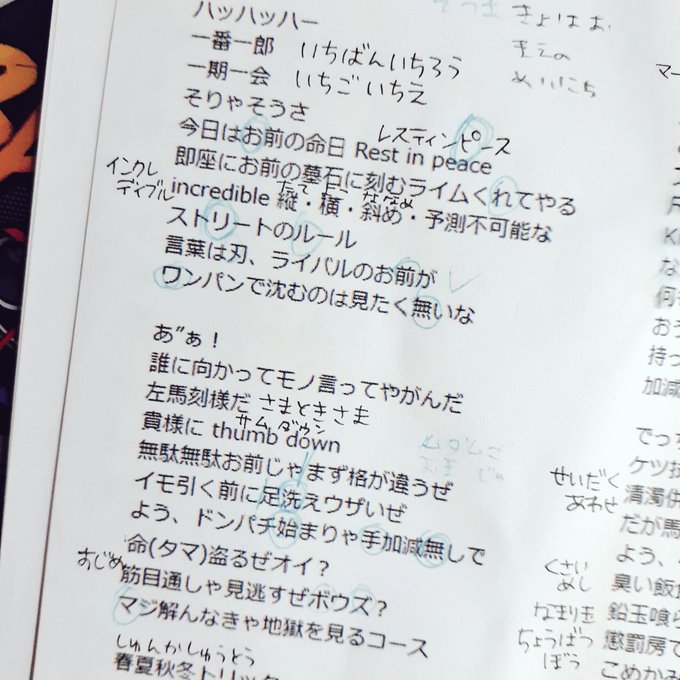 ハッハッハー
一番一郎 いちばんいちろう
一期一会 いちごいちえ
そりゃそうさ
レスティンピース
今日はお前の命日 Rest in peace
即座にお前の墓石に刻むライムくれてやる
インクレ
ディブル
たて よこ ななめ
incredible 縦・横・斜め・予測不可能な
ストリートのルール
言葉は刃、ライバルのお前が
ワンパンで沈むのは見たく無いな
あ"ぁ!
誰に向かってモノ言ってやがんだ
左馬刻様だ さまときさま
サムダウン
貴様に thumb down
無駄無駄お前じゃまず格が違うぜ
イモ引く前に足洗えウザいぜ
よう、ドンパチ始まりゃ手加減無しで
命(タマ)盗るぜオイ?
おじめ
筋目通しゃ見逃すぜボウズ?
マジ解んなきゃ地獄を見るコース
しゅんかしゅうとう
春夏秋冬トリック
きょうはお
まえの
めいにち
マー
な
何
おう
持っ
加減
でっち
ケツ
せいだく
あわせ
清濁併
だが馬
よう、
くさい
めし
臭い飯
なまり玉
鉛玉喰ら
ちょうばつ
ぼう
懲罰房で
こめかみ